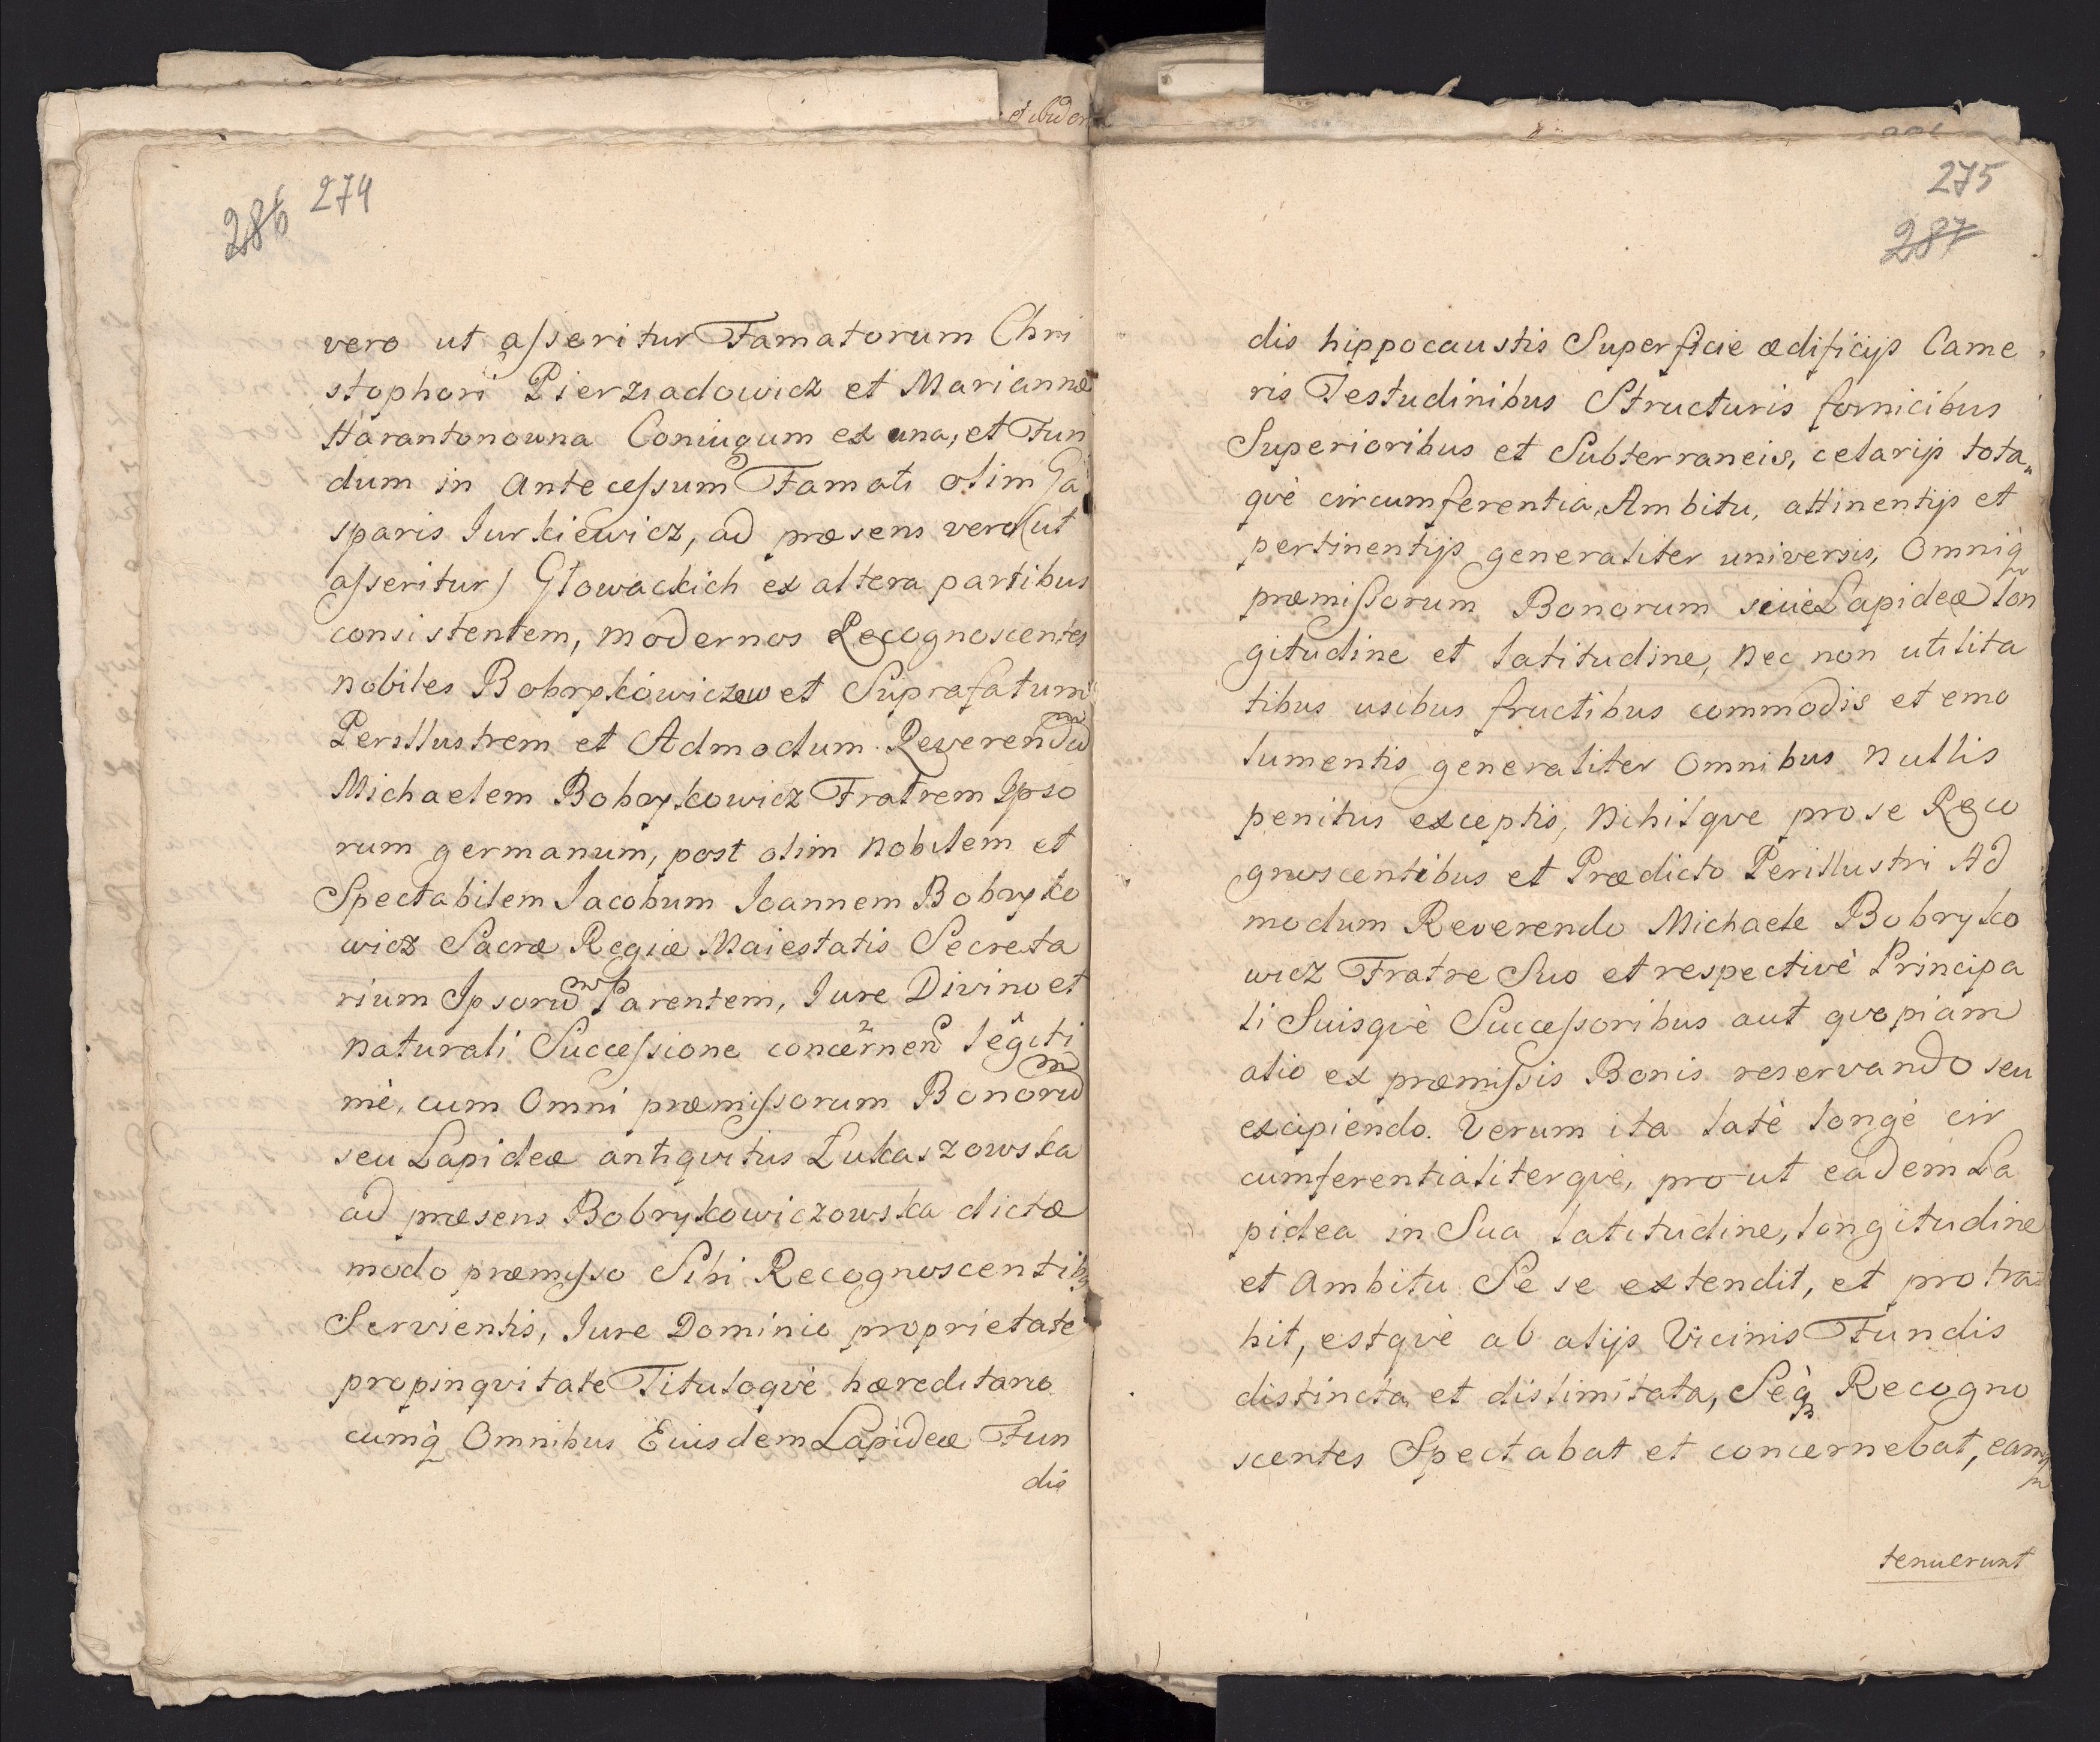 et
286 274
vero ut aſseritur Famatorum Chri
stophori Pierziadowicz et Mariannæ
Harantonowna Coniugum ex una, et Fun
dum in Anteceſsum Famati olim Ga
sparis Iurkiewicz, ad præsens vero (ut
aſseritur) Głowackich ex altera partibus
consistentem, modernos Recognoscentes
nobiles Bobrykowiczew et Suprafatum
Perillustrem et Admodum Reverendũ
Michaelem Bobrykowicz Fratrem Ipso
rum germanum, post olim Nobilem et
Spectabilem Iacobum Ioannem Bobryko
wicz Sacræ Regiæ Maiestatis Secreta
rium Ipsorũ Parentem, Iure Divino et
naturali Succeſsione concernen̄ legiti
mè, cum Omni præmiſsorum Bonorũ
seu Lapideæ antiqvitus Łukaszowska
ad præsens Bobrykowiczowska dictæ
modo præmiſso Sibi Recognoscentib9
Servientis, Iure Dominio proprietate
propinqvitate Tituloqvè hæreditario
cumq̀ Omnibus Eiusdem Lapideæ Fun
dis
275
287
dis hippocaustis Superficie ædificijs Came
ris Testudinibus Structuris fornicibus
Superioribus et Subterraneis, celarijs tota„
qvè circumferentia, Ambitu, attinentijs et
pertinentijs generaliter universis, Omniq̀
præmiſsorum Bonorum sive Lapideæ lon
gitudine et latitudine, Nec non utilita
tibus usibus fructibus commodis et emo
lumentis generaliter Omnibus Nullis
penitus exceptis, Nihilqve pro se Reco
gnoscentibus et Prædicto Perillustri Ad
modum Reverendo Michaele Bobryko
wicz Fratre Suo et respectivè Principa
li Suisqvè Succeſsoribus aut qvopiam
alio ex præmiſsis Bonis reservando seu
excipiendo. Verum ita latè longè cir
cumferentialiterqvè, prout eadem La
pidea in Sua latitudine, longitudine
et Ambitu Se se extendit, et protra
hit, estqvè ab alijs Vicinis Fundis
distincta et dislimitata, Seq̀ Recogno
scentes Spectabat et concernebat, eamq̀
tenuerunt